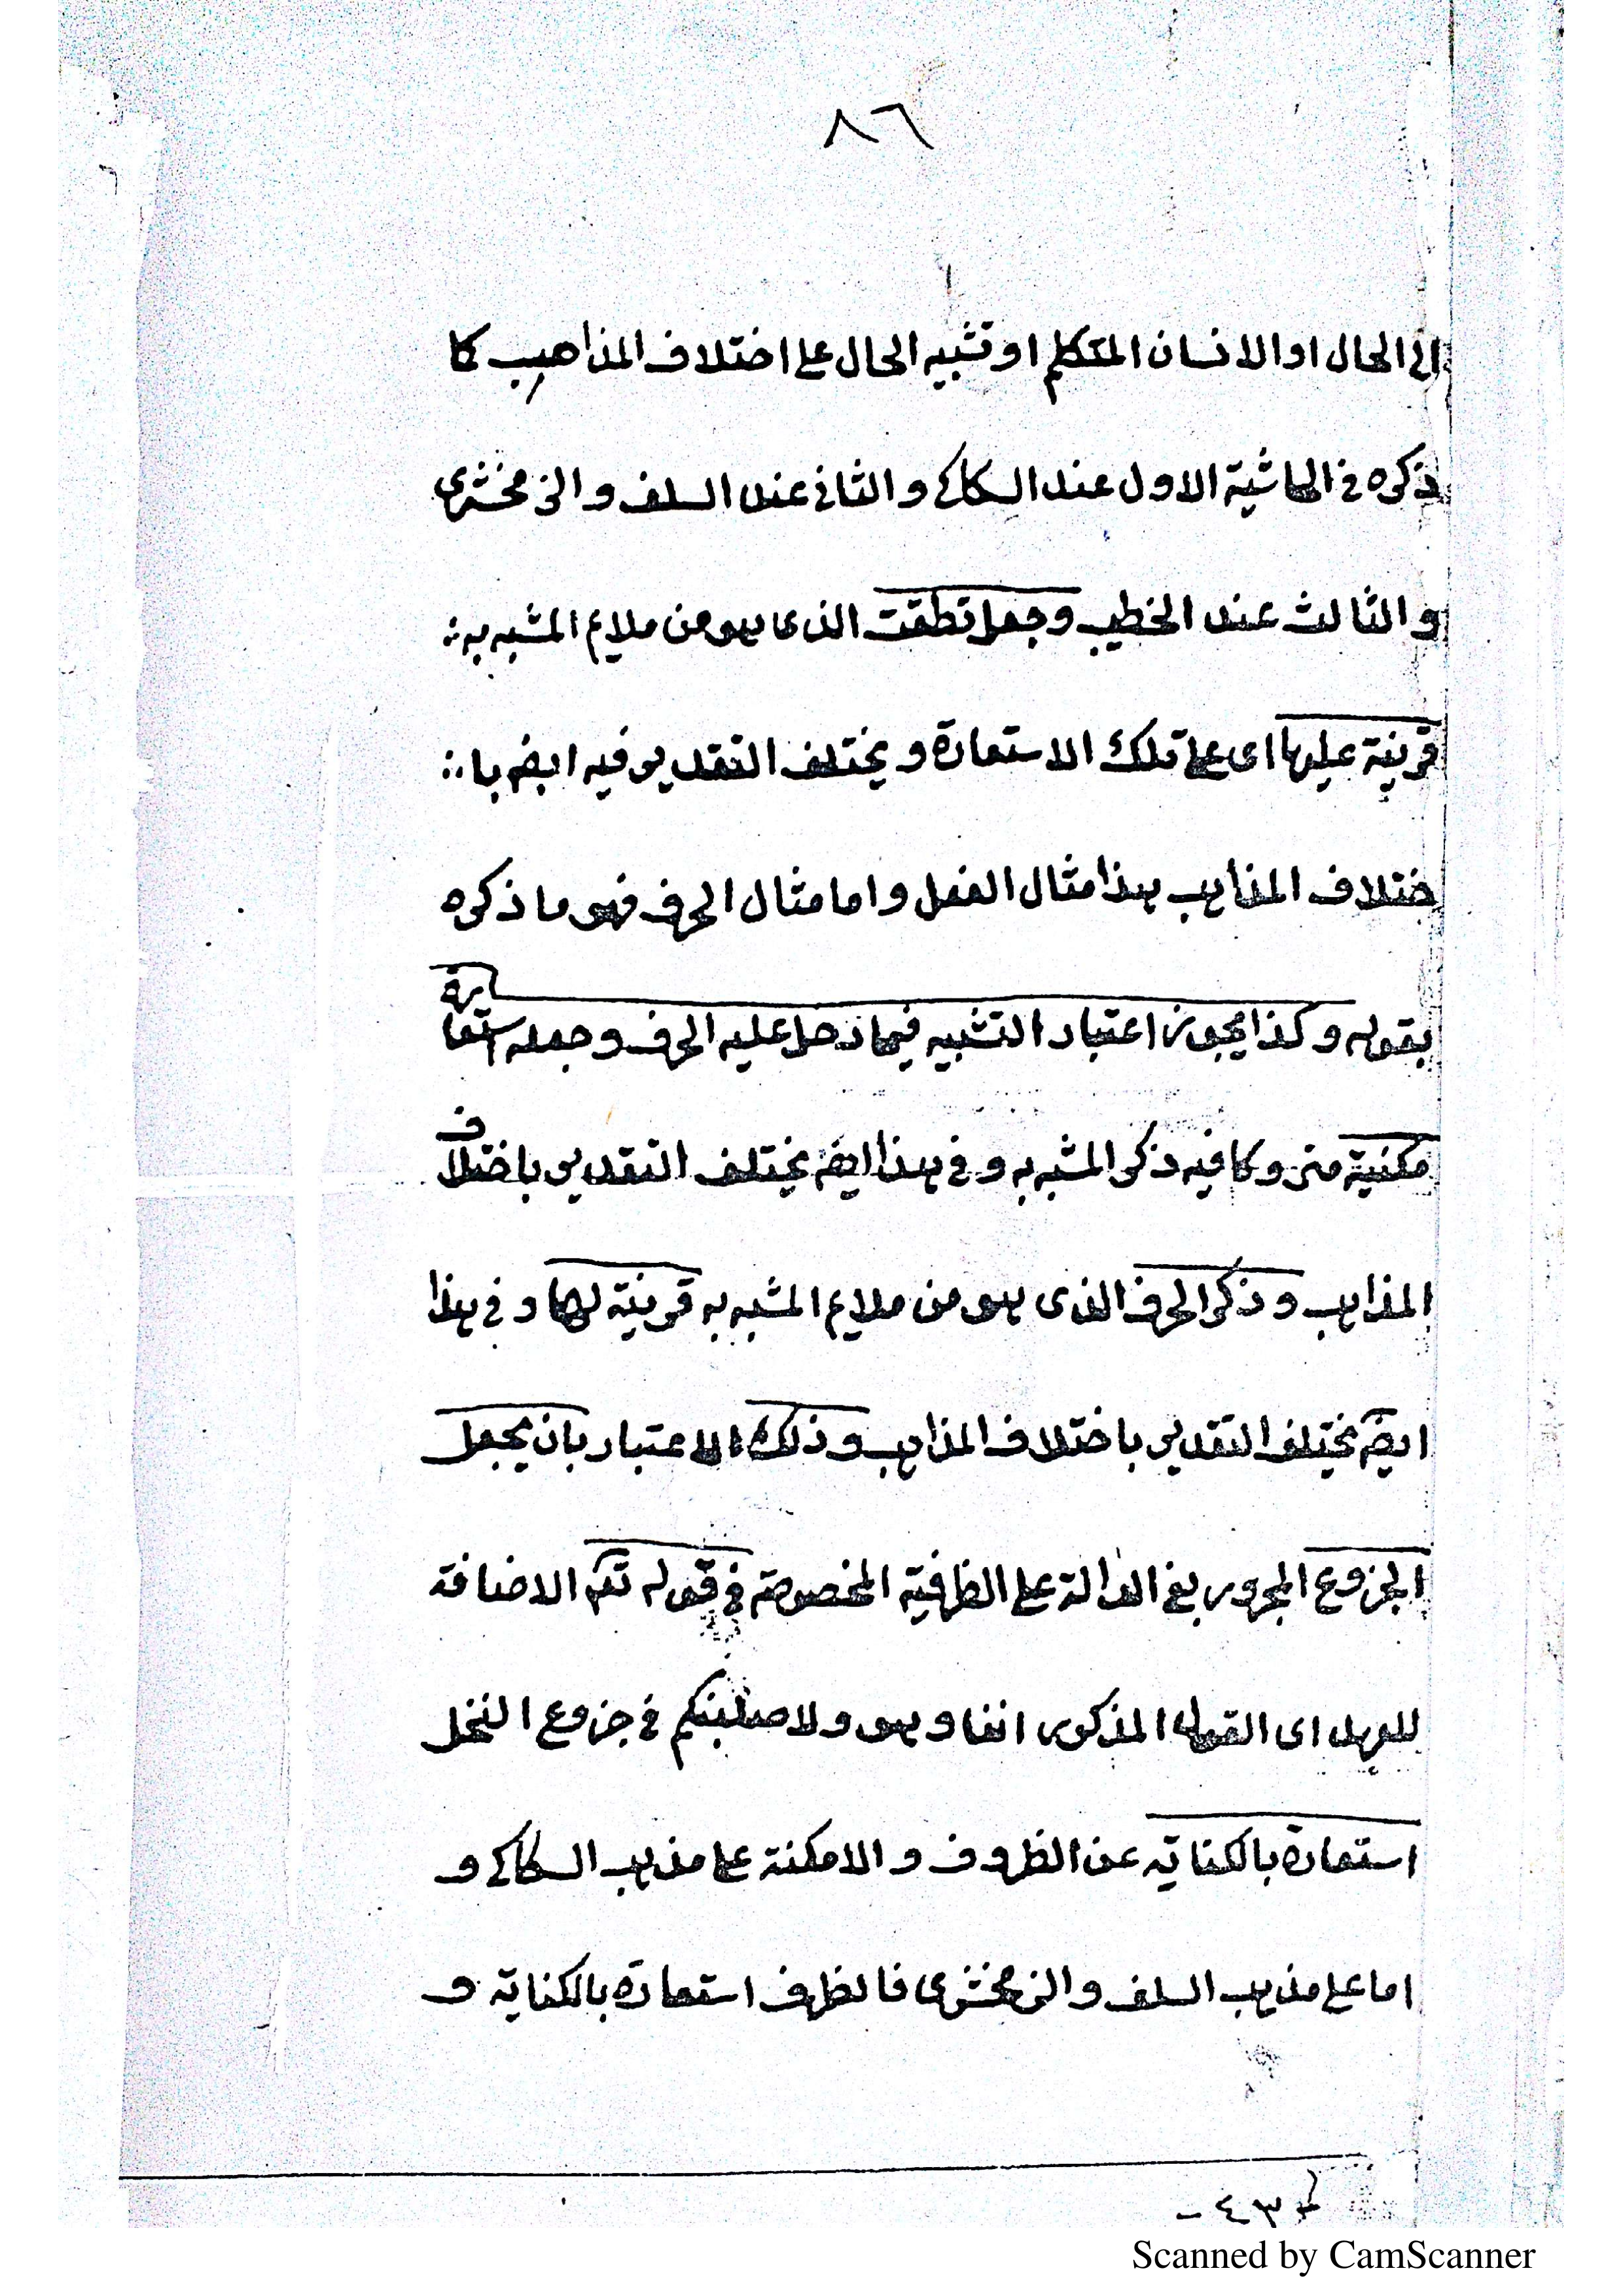 ٨٦
الى الحال او الانسان المتكلم او تشبيه الحال على اختلاف المذاهب كما
ذكره في الحاشية الاول عند السكاكي والثاني عند السلف والزمخشرى
والثالث عند الخطيب وجعل نطقت الذى هو من ملايم المشبه به
قرينة عليها اى على تلك الاستعارة ويختلف التقدير فيه ايضا با
ختلاف المذاهب هذا مثال الفعل واما مثال الحرف فهو ما ذكره
بقوله وكذا يجوز اعتبار التشبيه فيما دخل عليه الحرف وجعله استعارة
مكنية متروكا فيه ذكر المشبه به وفي هذا ايضا يختلف التقدير باختلاف
المذاهب وذكر الحرف الذى هو من ملايم المشبه به قرينة لها وفي هذا
ايضا يختلف التقدير باختلاف المذاهب وذلك الاعتبار بان يجعل
الجزوع المجرور بفي الدالة على الظرفية المخصوصة في قوله تعم الاضافة
للعهد اى القول المذكور انفا وهو ولاصلبنكم في جزوع النخل
استعارة بالكناية عن الظروف والامكنة على مذهب السكاكي و
اما على مذهب السلف والزمخشرى فالظرف استعارة بالكناية و
٤٣ -
Scanned by CamScanner